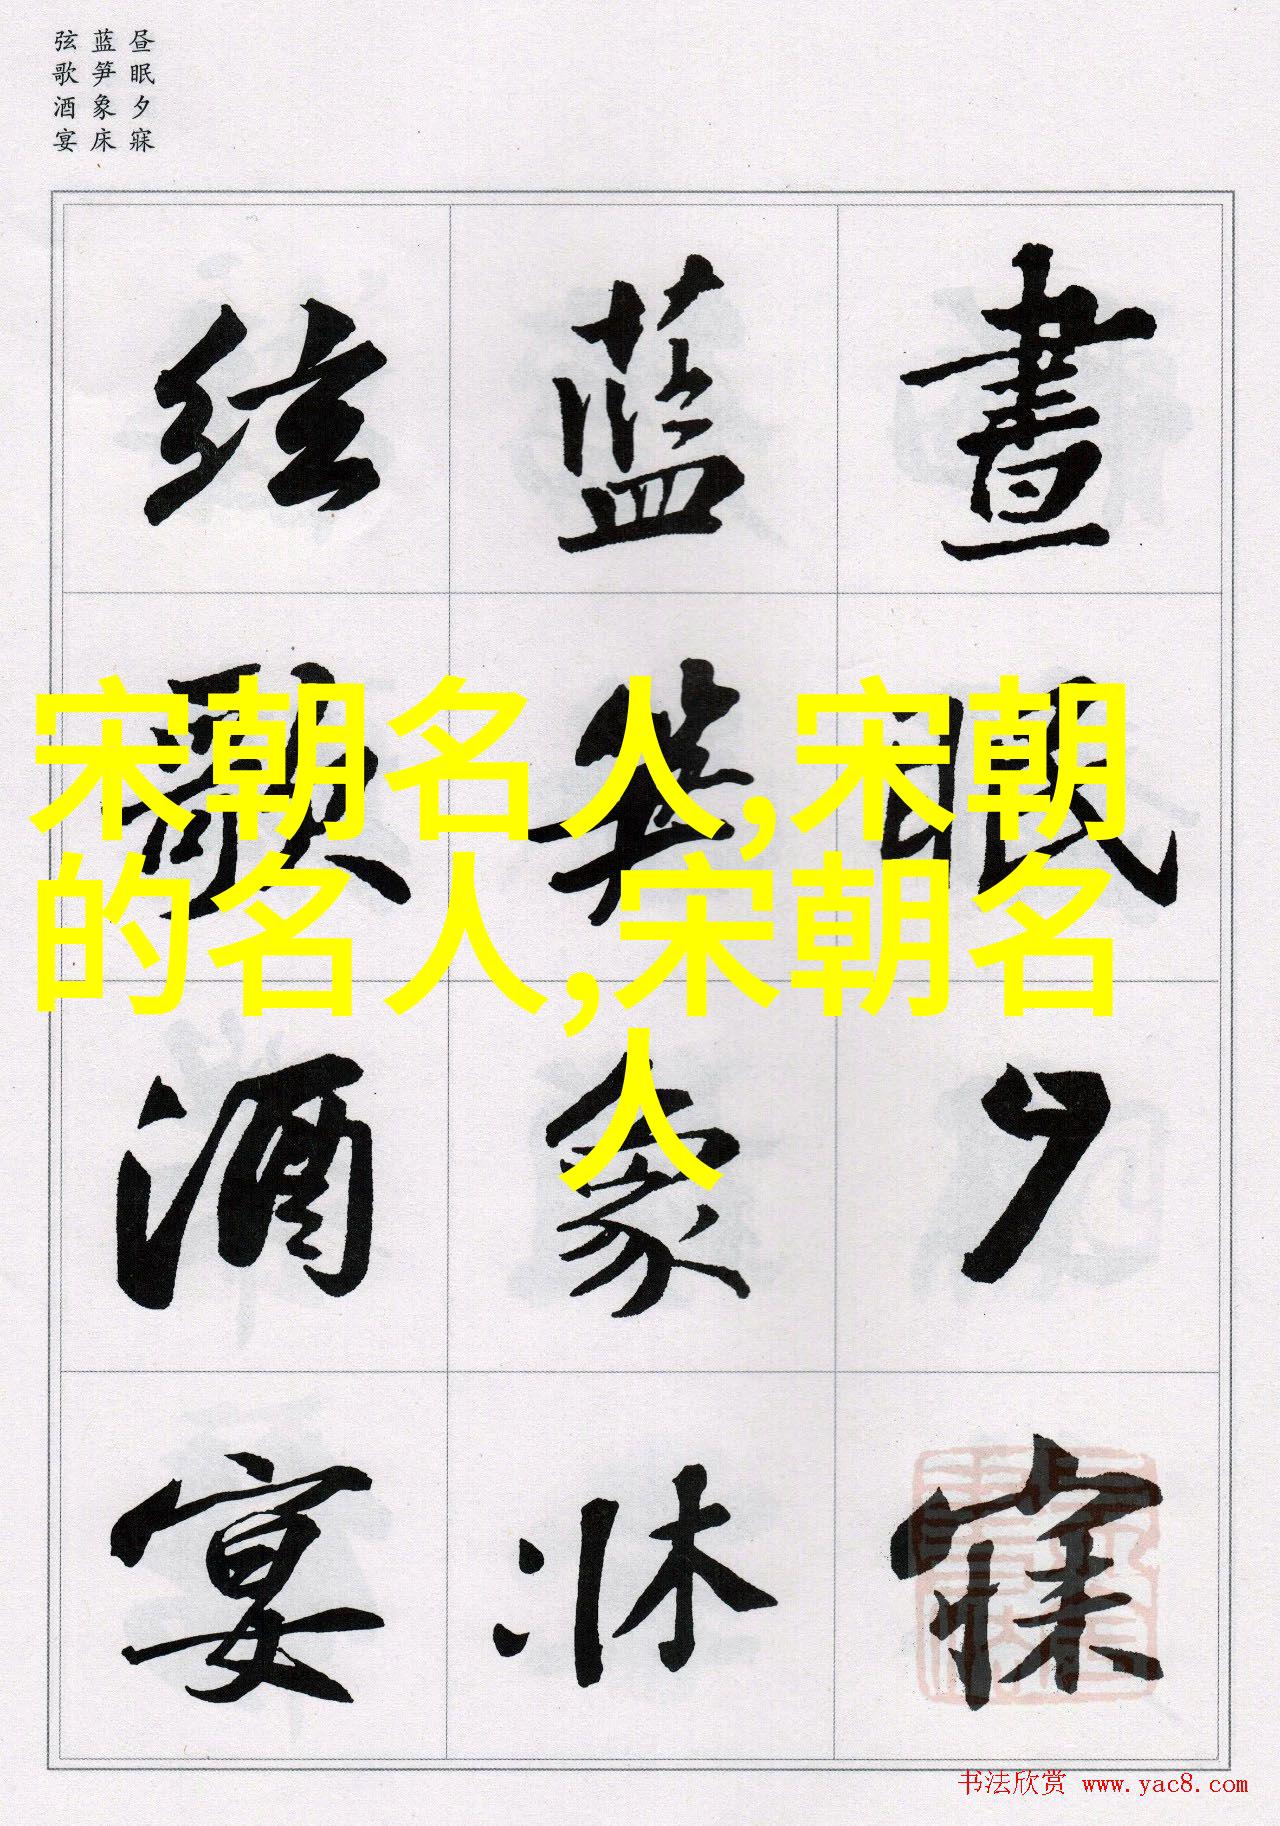 昼眠夕寐
蓝笋象床
弦歌酒宴
晝眠夕寐
藍笋象牀
絃歌酒宴
宋朝名人,宋朝
的名人,宋朝名
人
书法欣赏 www.yac8.com